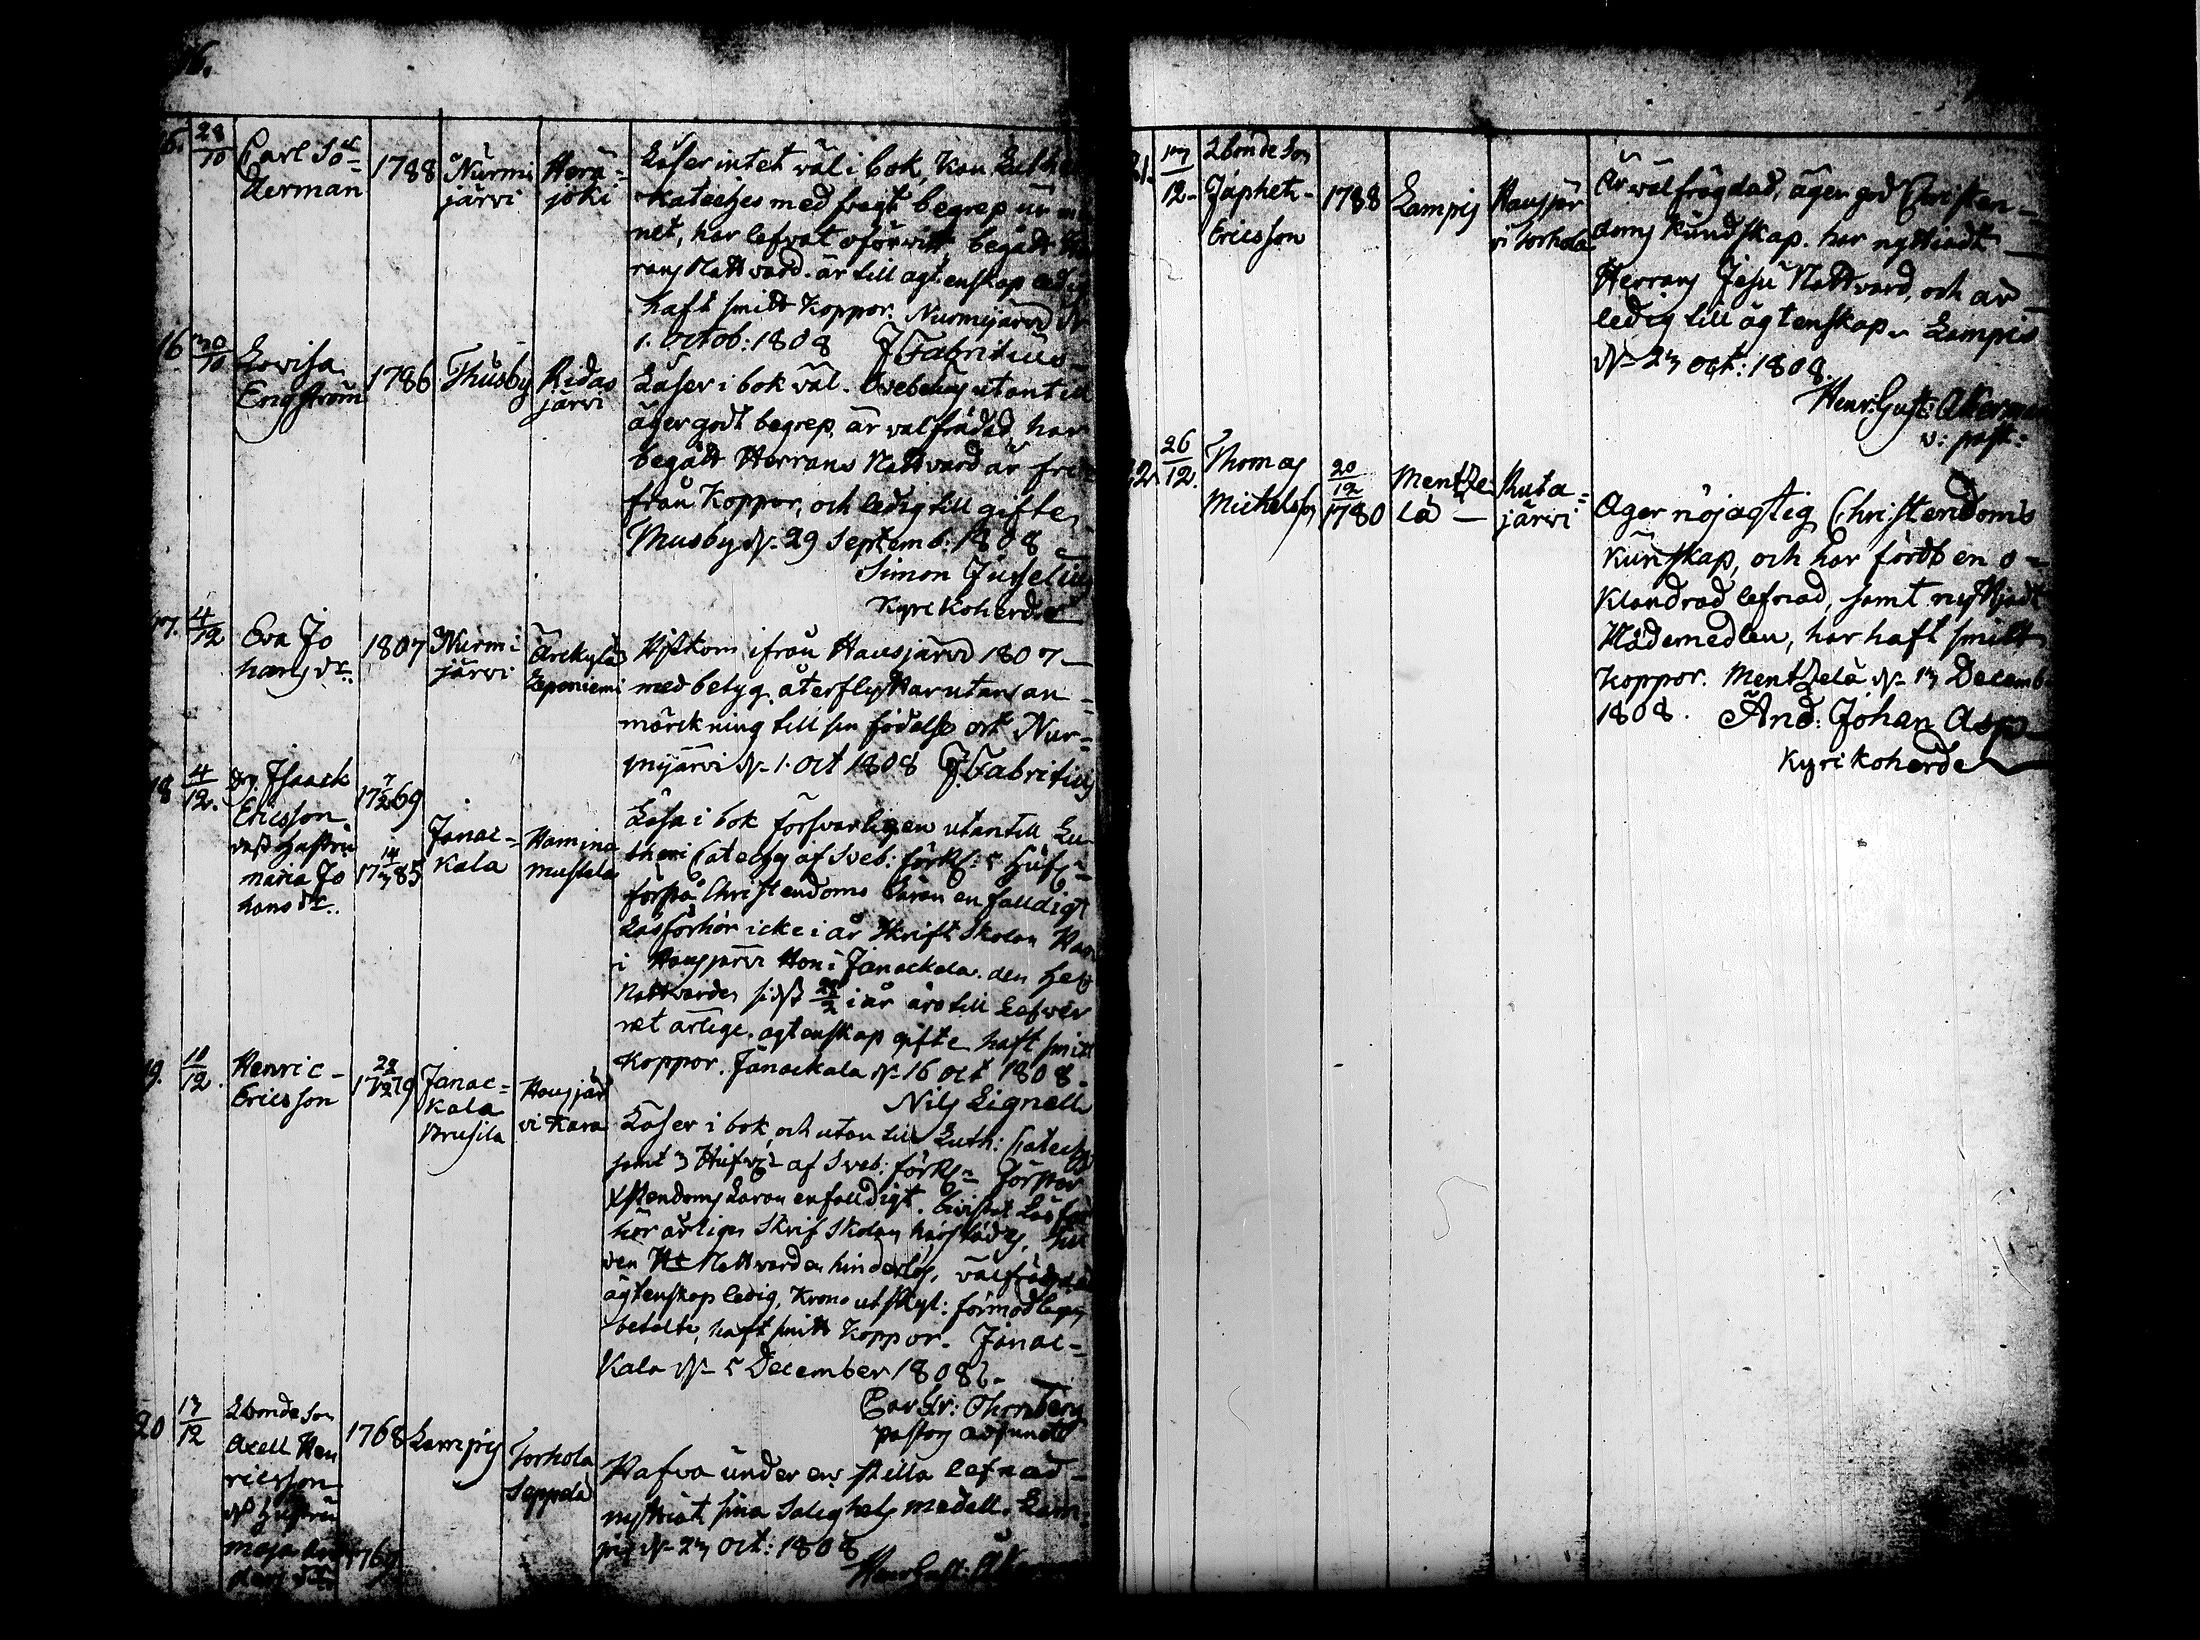 6.
28/10
Carl Sö=
derman
1788
Nurmi
järvi
Herä=
joki
Läser intet väl i bok, kan Luthe
Kateches med svagt begrep ur mi
net, har lefvat oförvitt begått Her
rans Nattvard. är till ägtenskap ledig
haft smitt koppor. Nurmijärvi d.
1. Octob: 1808 J Fabritius
16
30/10
Lovisa
Engström
1786
Thusby
Ridas
järvi
Läser i bok väl. Svebelius utantill
äger godt begrep, är välfrädad har
begått Herrans Nattvard är fri
från Koppor, och ledig till gifte.
Thusby d. 29 Septemb: 1808
Simon Jusselius
Kyrckoherde
17.
4/12
Eva Jo
hans dr.
1807
Nurmi
järvi
Ärekylä
Leponiemi
Hitkom ifrån Hausjärvi 1807
med betyg. återflyttar utan an=
märckning till sin födelse ort Nur=
mijärvi d. 1. Oct 1808 J. Fabritius
18
4/12.
Isaack
Ericsson
dess hustru
Maria Jo
hans dr.
17 7/12 69
17 14/3 85
Janac=
kala
Hamina
Mustela
Läsa i bok försvarligen utantill Lu
theri Cateches af Sveb: förkl: 5 Huf
förstå Christendoms Läran enfalldigt
Läsförhör icke i år Skrift Skolan Han
i Hausjärvi Hon i Janackala. den Hel
Nattvarden sidst 28/2 i år äro till Lefver
net ärlige. ägtenskap gifte haft smitt
koppor. Janackala d. 16 Oct 1808.
Nils Lignell
19.
10/12.
Henric
Ericsson
17 22/12 79
Janac=
kala
Brusila
Hausjär
vi Kara
Läser i bok, och utan till Luth: Cateches
samt 3 Hufv: af Sveb: förkl: förstår
Xstendoms Läran enfalldigt. bivistat Läsför
hör årligen Skrif Skolan härstädes, till
den H: Nattvarden hinderlös, välfrägdad
ägtenskap ledig, Krono utskyl: förmodligen
betalte, haft smitt koppor. Janac=
kala d. 5 December 1808
Thornberg
Pastors adjunct
20
13/12
Lbonde Son
Axell Hen
ricsson
d. hustru
Maja
dr.
1768
1769
Lampis
Torhola
Seppälä
Hafva under en stilla lefnad
nyttiat sina Salighets medell. Lam=
pis d. 23 Oct: 1808
Henr Gust: Åkerman
21.
17/12
Lbonde Son
Japheth
Ericsson
1788
Lampis
Hausjär
vi Torhola
Är välfrägdad, äger god Christen=
doms Kundskap. har nyttiadt
Herrans Jesu Nattvard, och är
ledig till ägtenskap. Lampis
d. 23 Oct: 1808.
Henr: Gust: Åkerman
v: past:
22.
26/12.
Thomas
Michelsson
20/12
1780
Mentze
lä
Ruta=
järvi
Äger nöjagtig Christendoms
Kunskap, och har fördt en o=
klandrad lefnad, samt nyttjadt
Nådemedlen, har haft smitt
koppor. Mentzelä d. 13 Decemb
1808. And: Johan Asp
Kyrikoherde